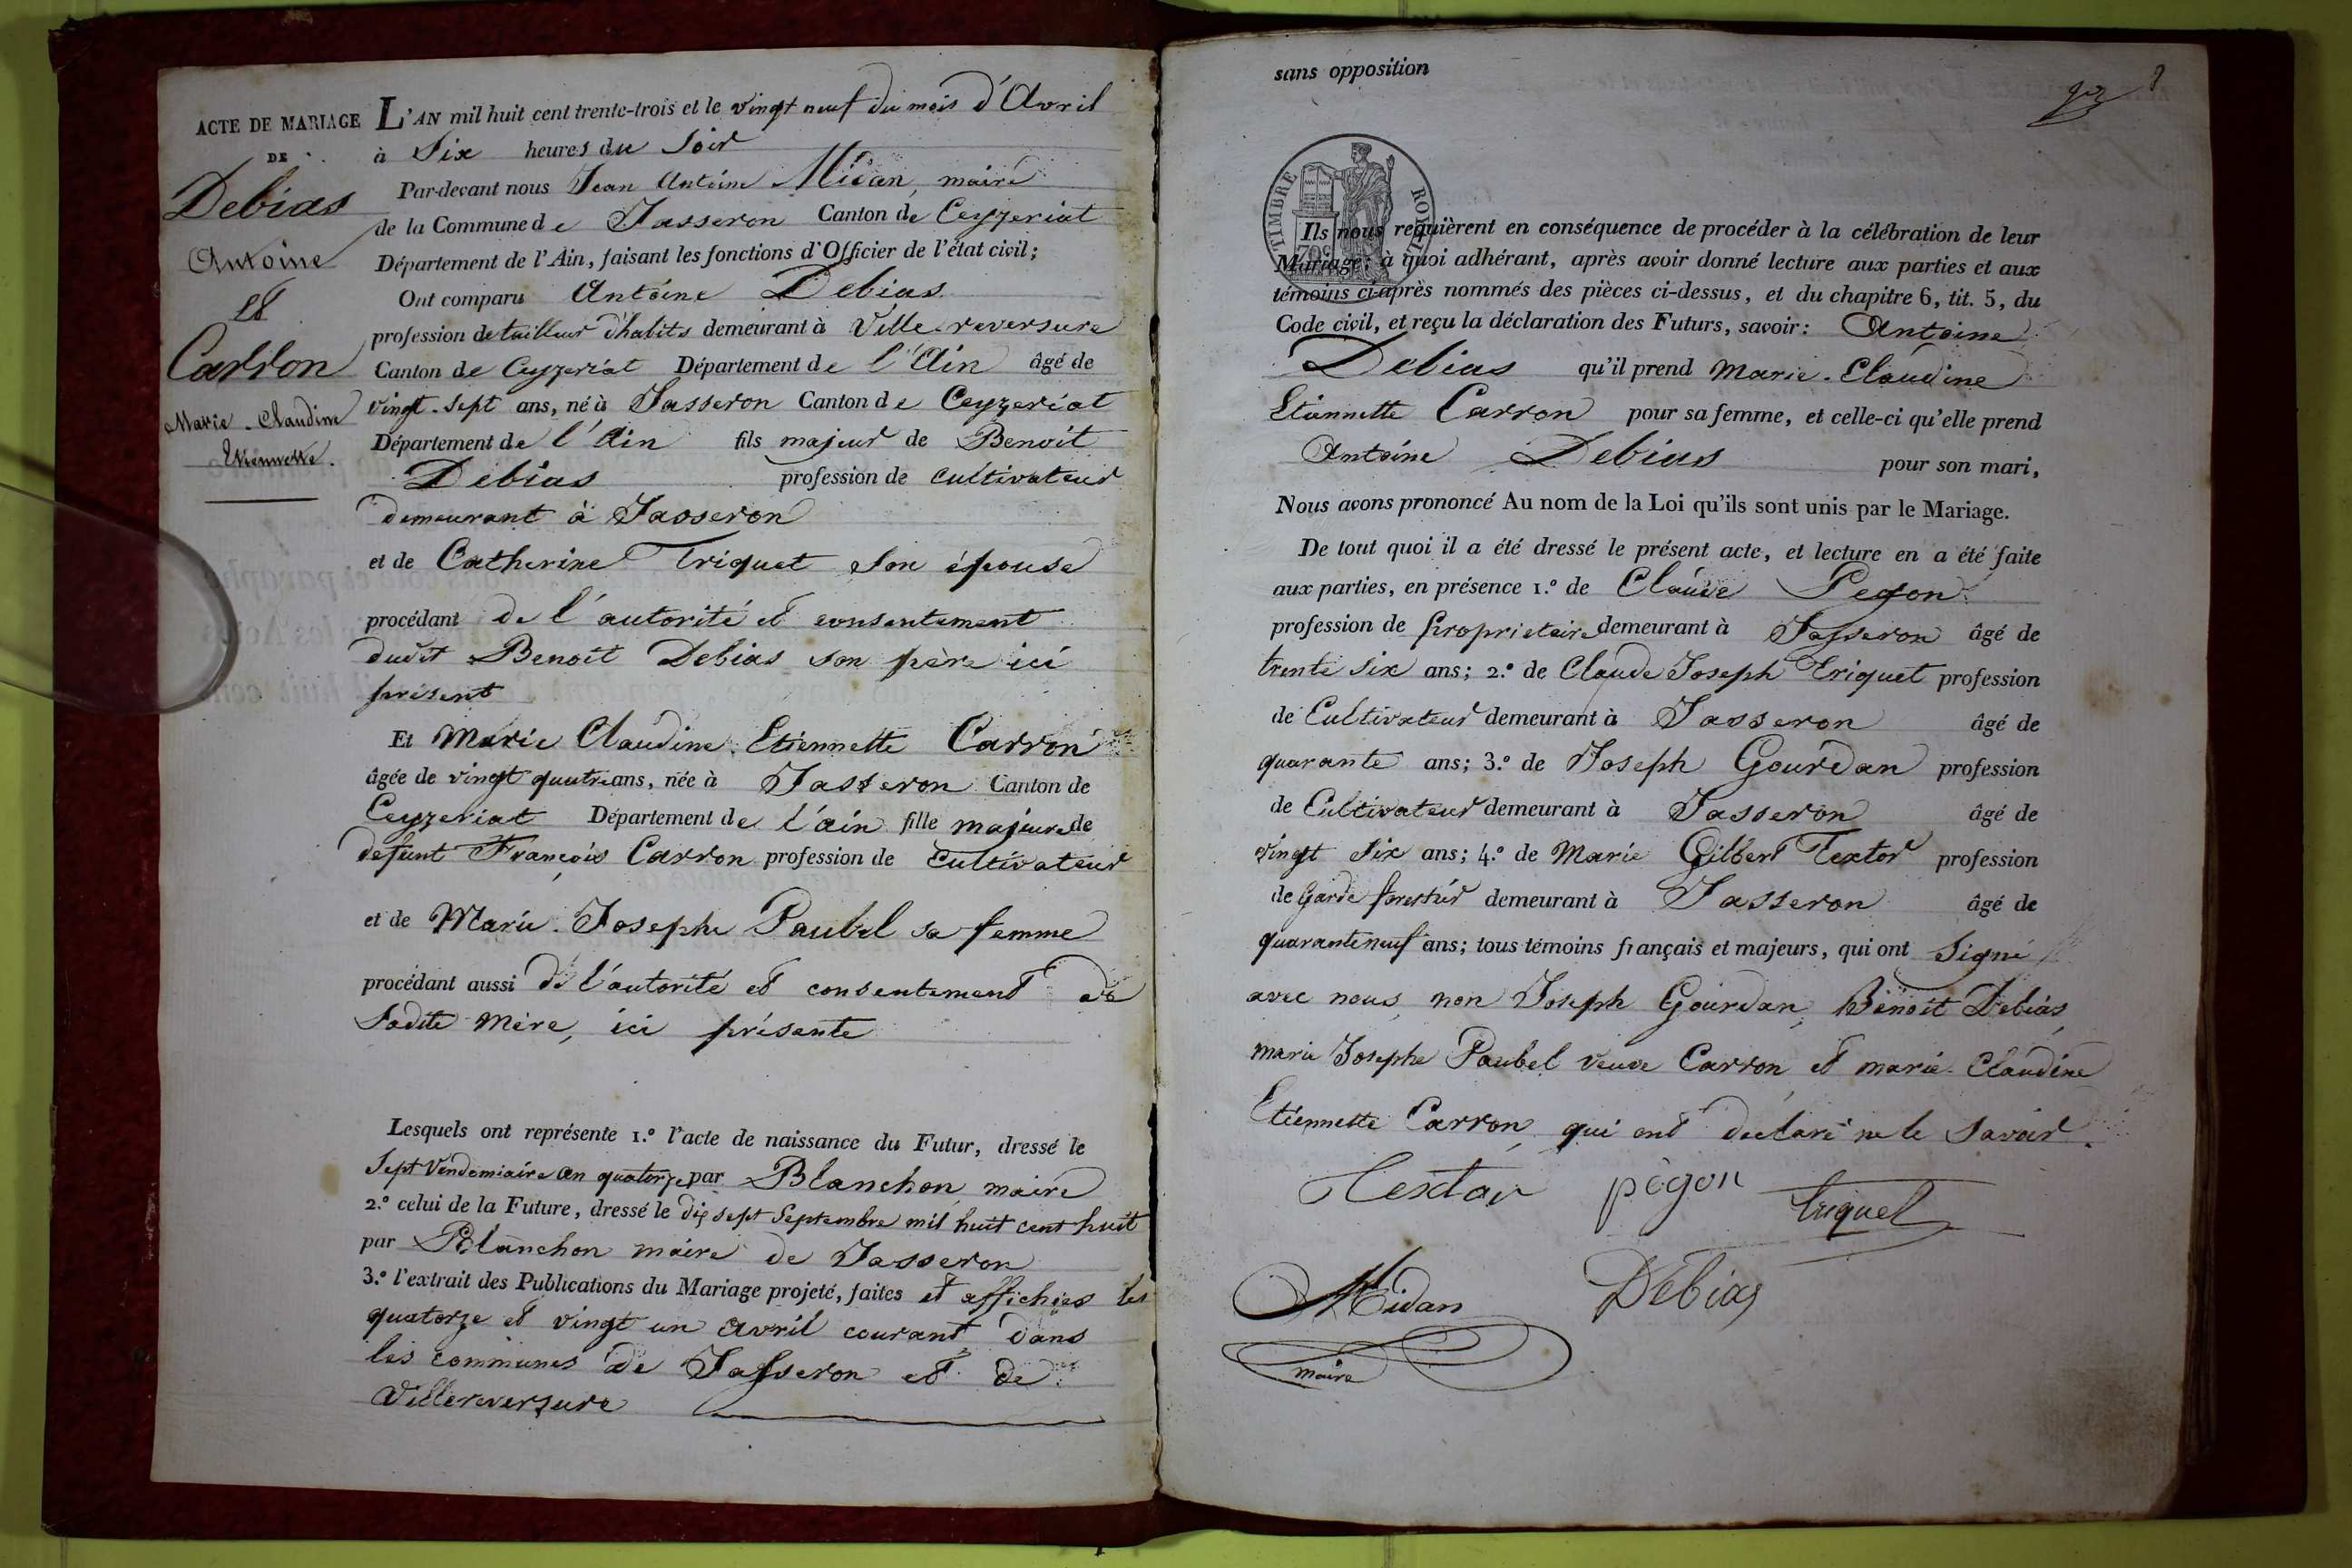 ACTE DE MARIAGE
DE
Debias
Antoine
et
Carron
Marie Claudine
Etiennette.
L'AN mil huit cent trente-trois et le vingt neuf du mois d'Avril
à Six heures du Soir
Par-devant nous Jean Antoine Midan, maire
de la Commune de Jasseron Canton de Ceyzeriat
Département de l'Ain, faisant les fonctions d'Officier de l'état civil;
Ont comparu Antoine Debias
profession de tailleur d'habits demeurant à Ville-reversure
Canton de Ceyzeriat Département de l'Ain âgé de
vingt-sept ans, né à Jasseron Canton de Ceyzeriat
Département de l'Ain fils majeur de Benoit
Debias profession de cultivateur
demeurant à Jasseron
et de Catherine Triquet son épouse
procédant de l'autorité et consentement
dudit Benoit Debias son père ici
présent
Et Marie Claudine Etiennette Carron
âgée de vingt quatre ans, née à Jasseron Canton de
Ceyzeriat Département de l'ain fille majeure de
defunt François Carron profession de Cultivateur
et de Marie Josephe Paubel sa femme
procédant aussi de l'autorité et consentement de
Sadite Mère, ici présente
Lesquels ont représente 1.º l'acte de naissance du Futur, dressé le
Sept Vendemiaire an quatorze par Blanchon maire
2.º celui de la Future, dressé le dix sept Septembre mil huit cent huit
par Blanchon maire de Jasseron
3.º l'extrait des Publications du Mariage projeté, faites et affichées les
quatorze et vingt un avril courant dans
les communes de Jasseron et de
Villereversure
sans opposition
TIMBRE ROYAL
70c
Ils nous requièrent en conséquence de procéder à la célébration de leur
Mariage; à quoi adhérant, après avoir donné lecture aux parties et aux
témoins ci-après nommés des pièces ci-dessus, et du chapitre 6, tit. 5, du
Code civil, et reçu la déclaration des Futurs, savoir: Antoine
Debias qu'il prend Marie-Claudine
Etiennette Carron pour sa femme, et celle-ci qu'elle prend
Antoine Debias pour son mari,
Nous avons prononcé Au nom de la Loi qu'ils sont unis par le Mariage.
De tout quoi il a été dressé le présent acte, et lecture en a été faite
aux parties, en présence 1.º de Claude Pegon
profession de proprietaire demeurant à Jasseron âgé de
trente six ans; 2.º de Claude Joseph Triquet profession
de Cultivateur demeurant à Jasseron âgé de
quarante ans; 3.º de Joseph Gourdan profession
de Cultivateur demeurant à Jasseron âgé de
vingt six ans; 4.º de Marie Gilbert Textor profession
de Garde forestier demeurant à Jasseron âgé de
quarante neuf ans; tous témoins français et majeurs, qui ont Signé
avec nous, non Joseph Gourdan, Benoit Debias,
marie Josephe Paubel veuve Carron et marie-Claudine
Etiennette Carron qui ont déclaré ne le Savoir.
Textor pégon triquet
Midan Debias
maire